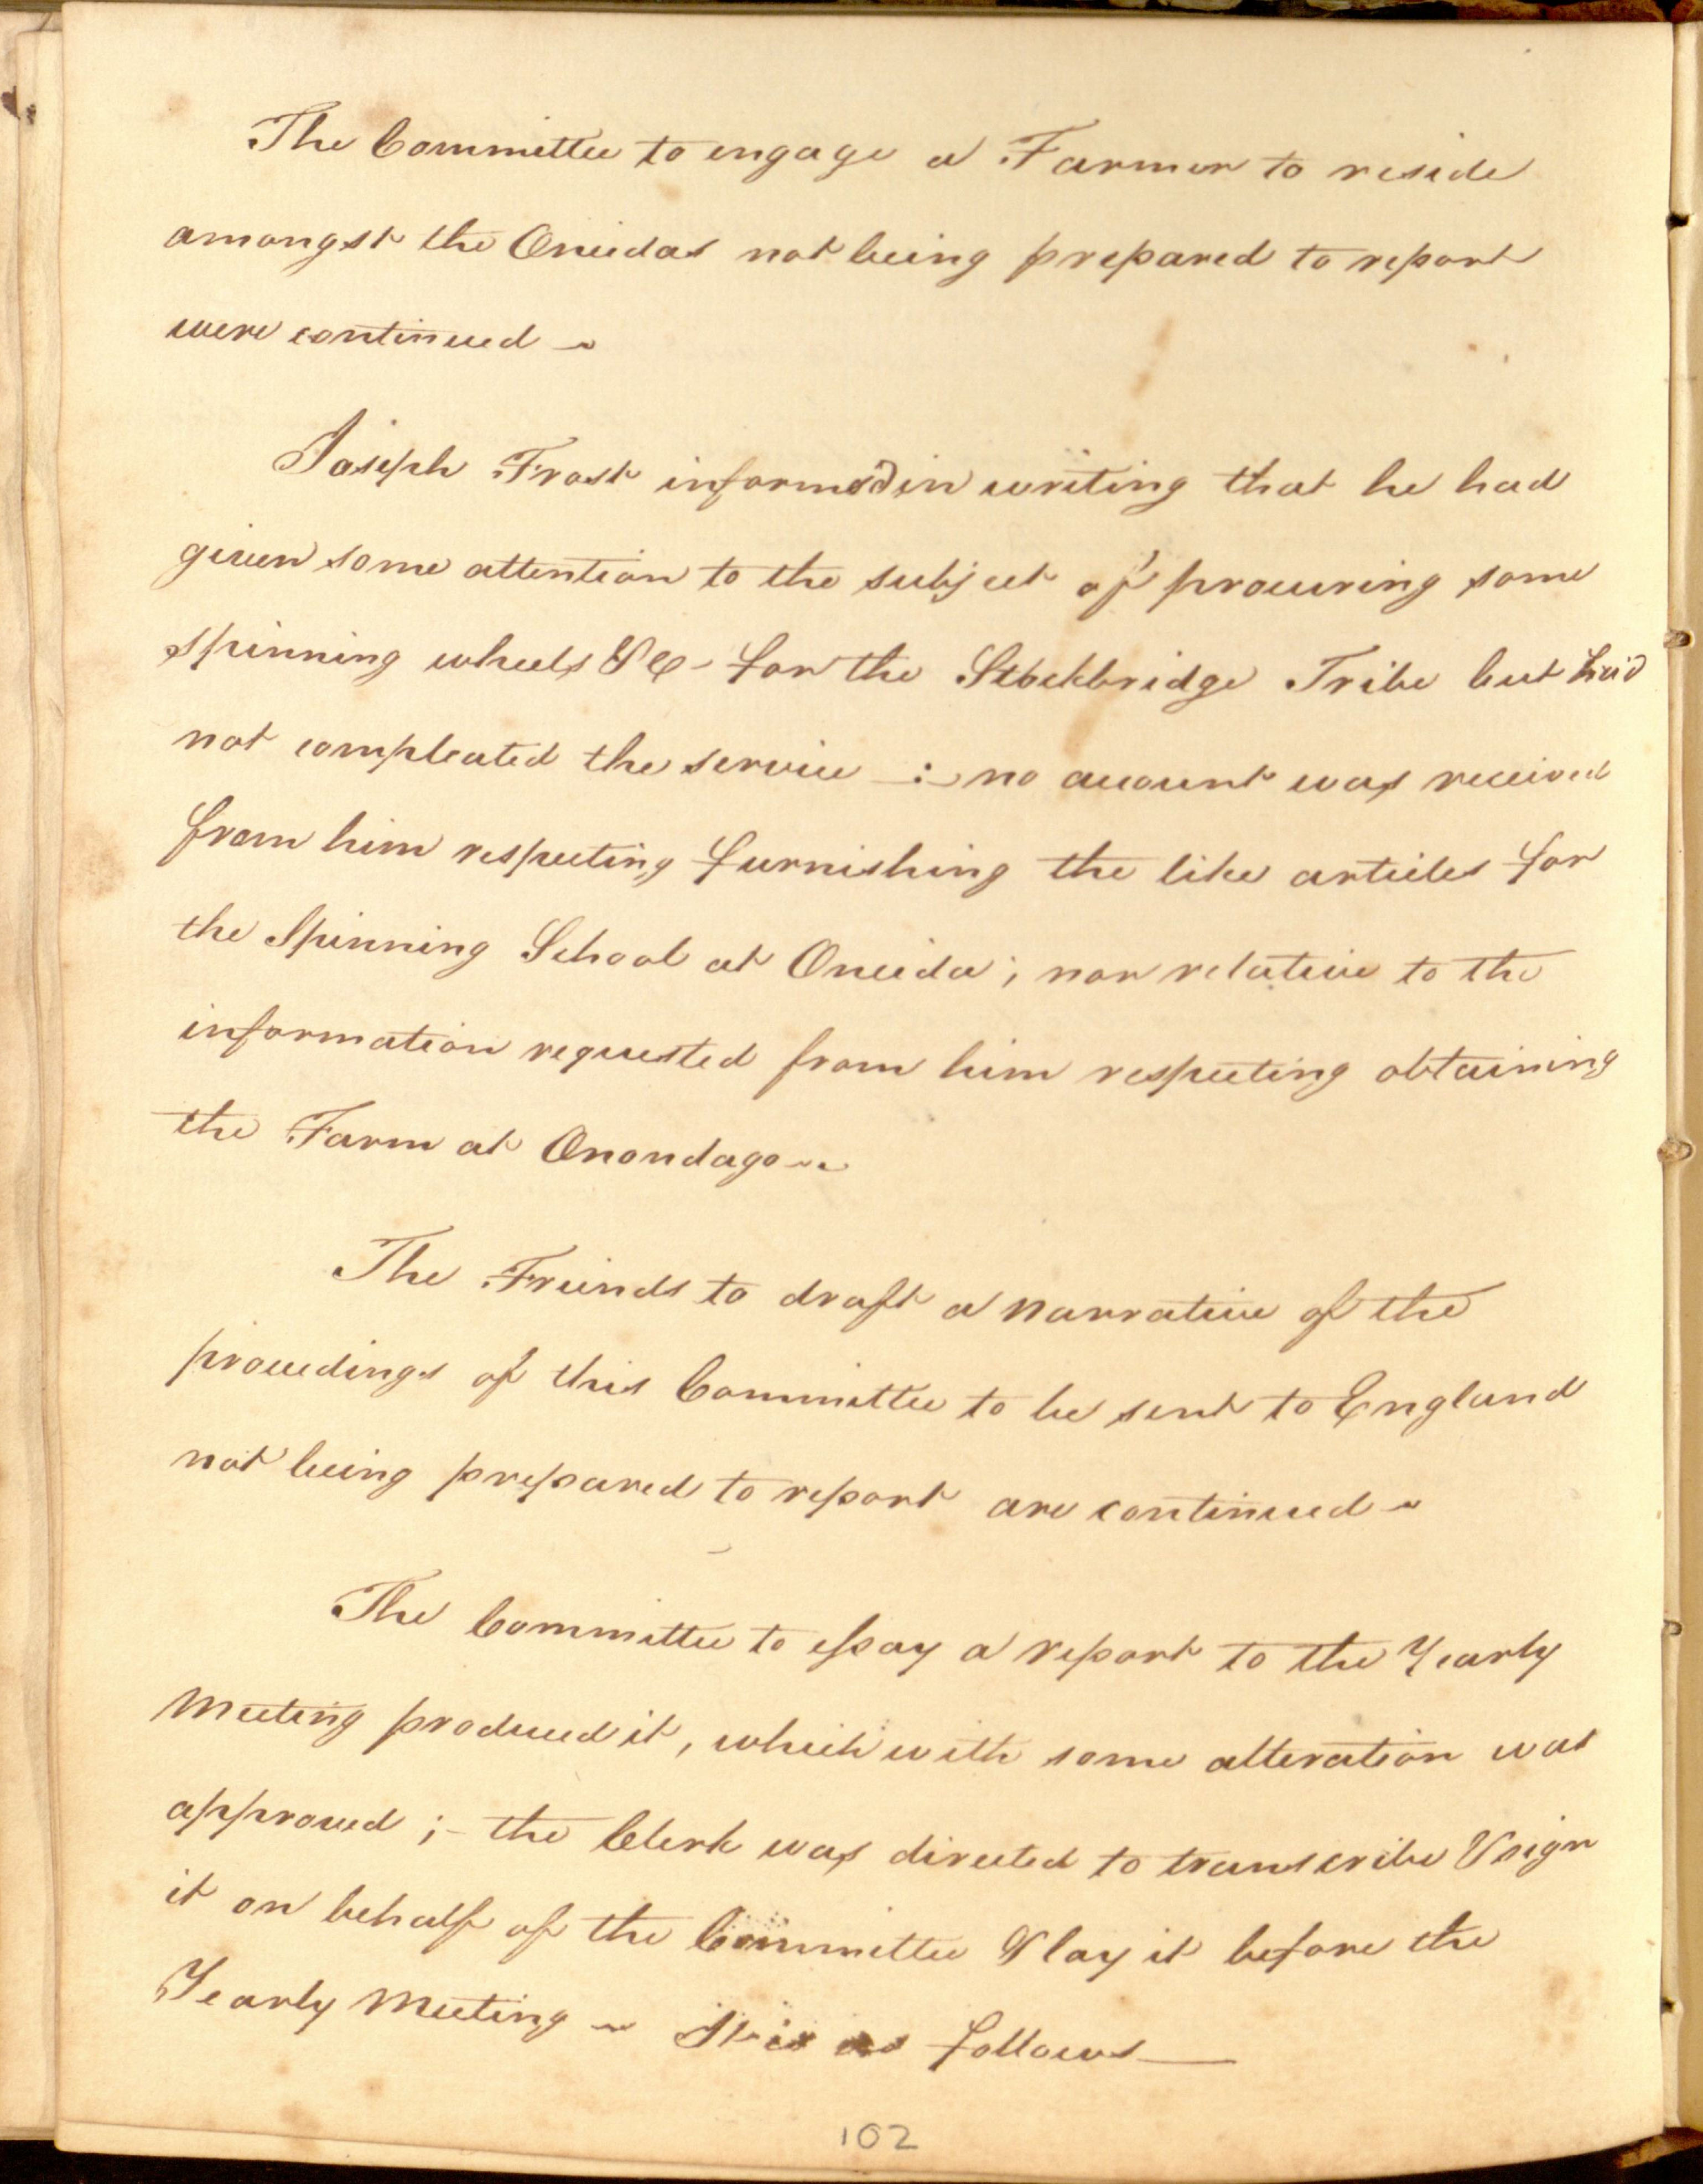 The Committee to engage a Farmer to reside
amongst the Oneidas not being prepared to report
were continued ~
Joseph Frost informed in writing that he had
given some attention to the subject of procuring some
spinning wheels &c - for the Stockbridge Tribe but had
not compleated the service —:— no account was received
from him respecting furnishing the like articles for
the Spinning School at Oneida; nor relative to the
information requested from him respecting obtaining
the Farm at Onondago ~
The Friends to draft a Narrative of the
proceedings of this Committee to be sent to England
not being prepared to report are continued ~
The Committee to essay a report to the Yearly
Meeting produced it, which with some alteration was
approved ;- the Clerk was directed to transcribe & sign
it on behalf of the Committee & lay it before the
Yearly Meeting ~ It is as follows —
102